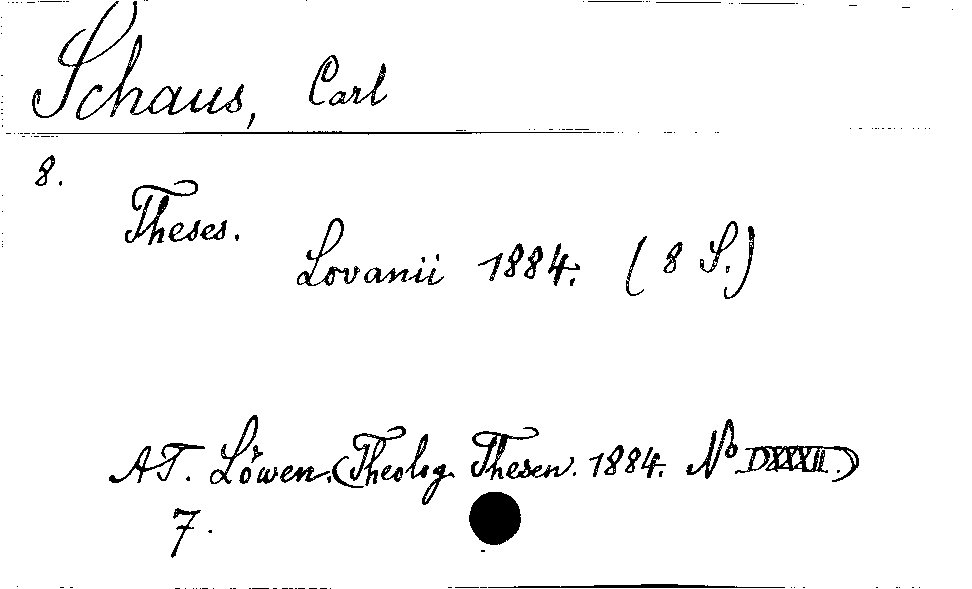 Schaus, Carl
8.
Theses.
Lovanii 1884. (8 S.)
AT. Löwen. (Theolog. Thesen. 1884. No DXXXII.)
7.